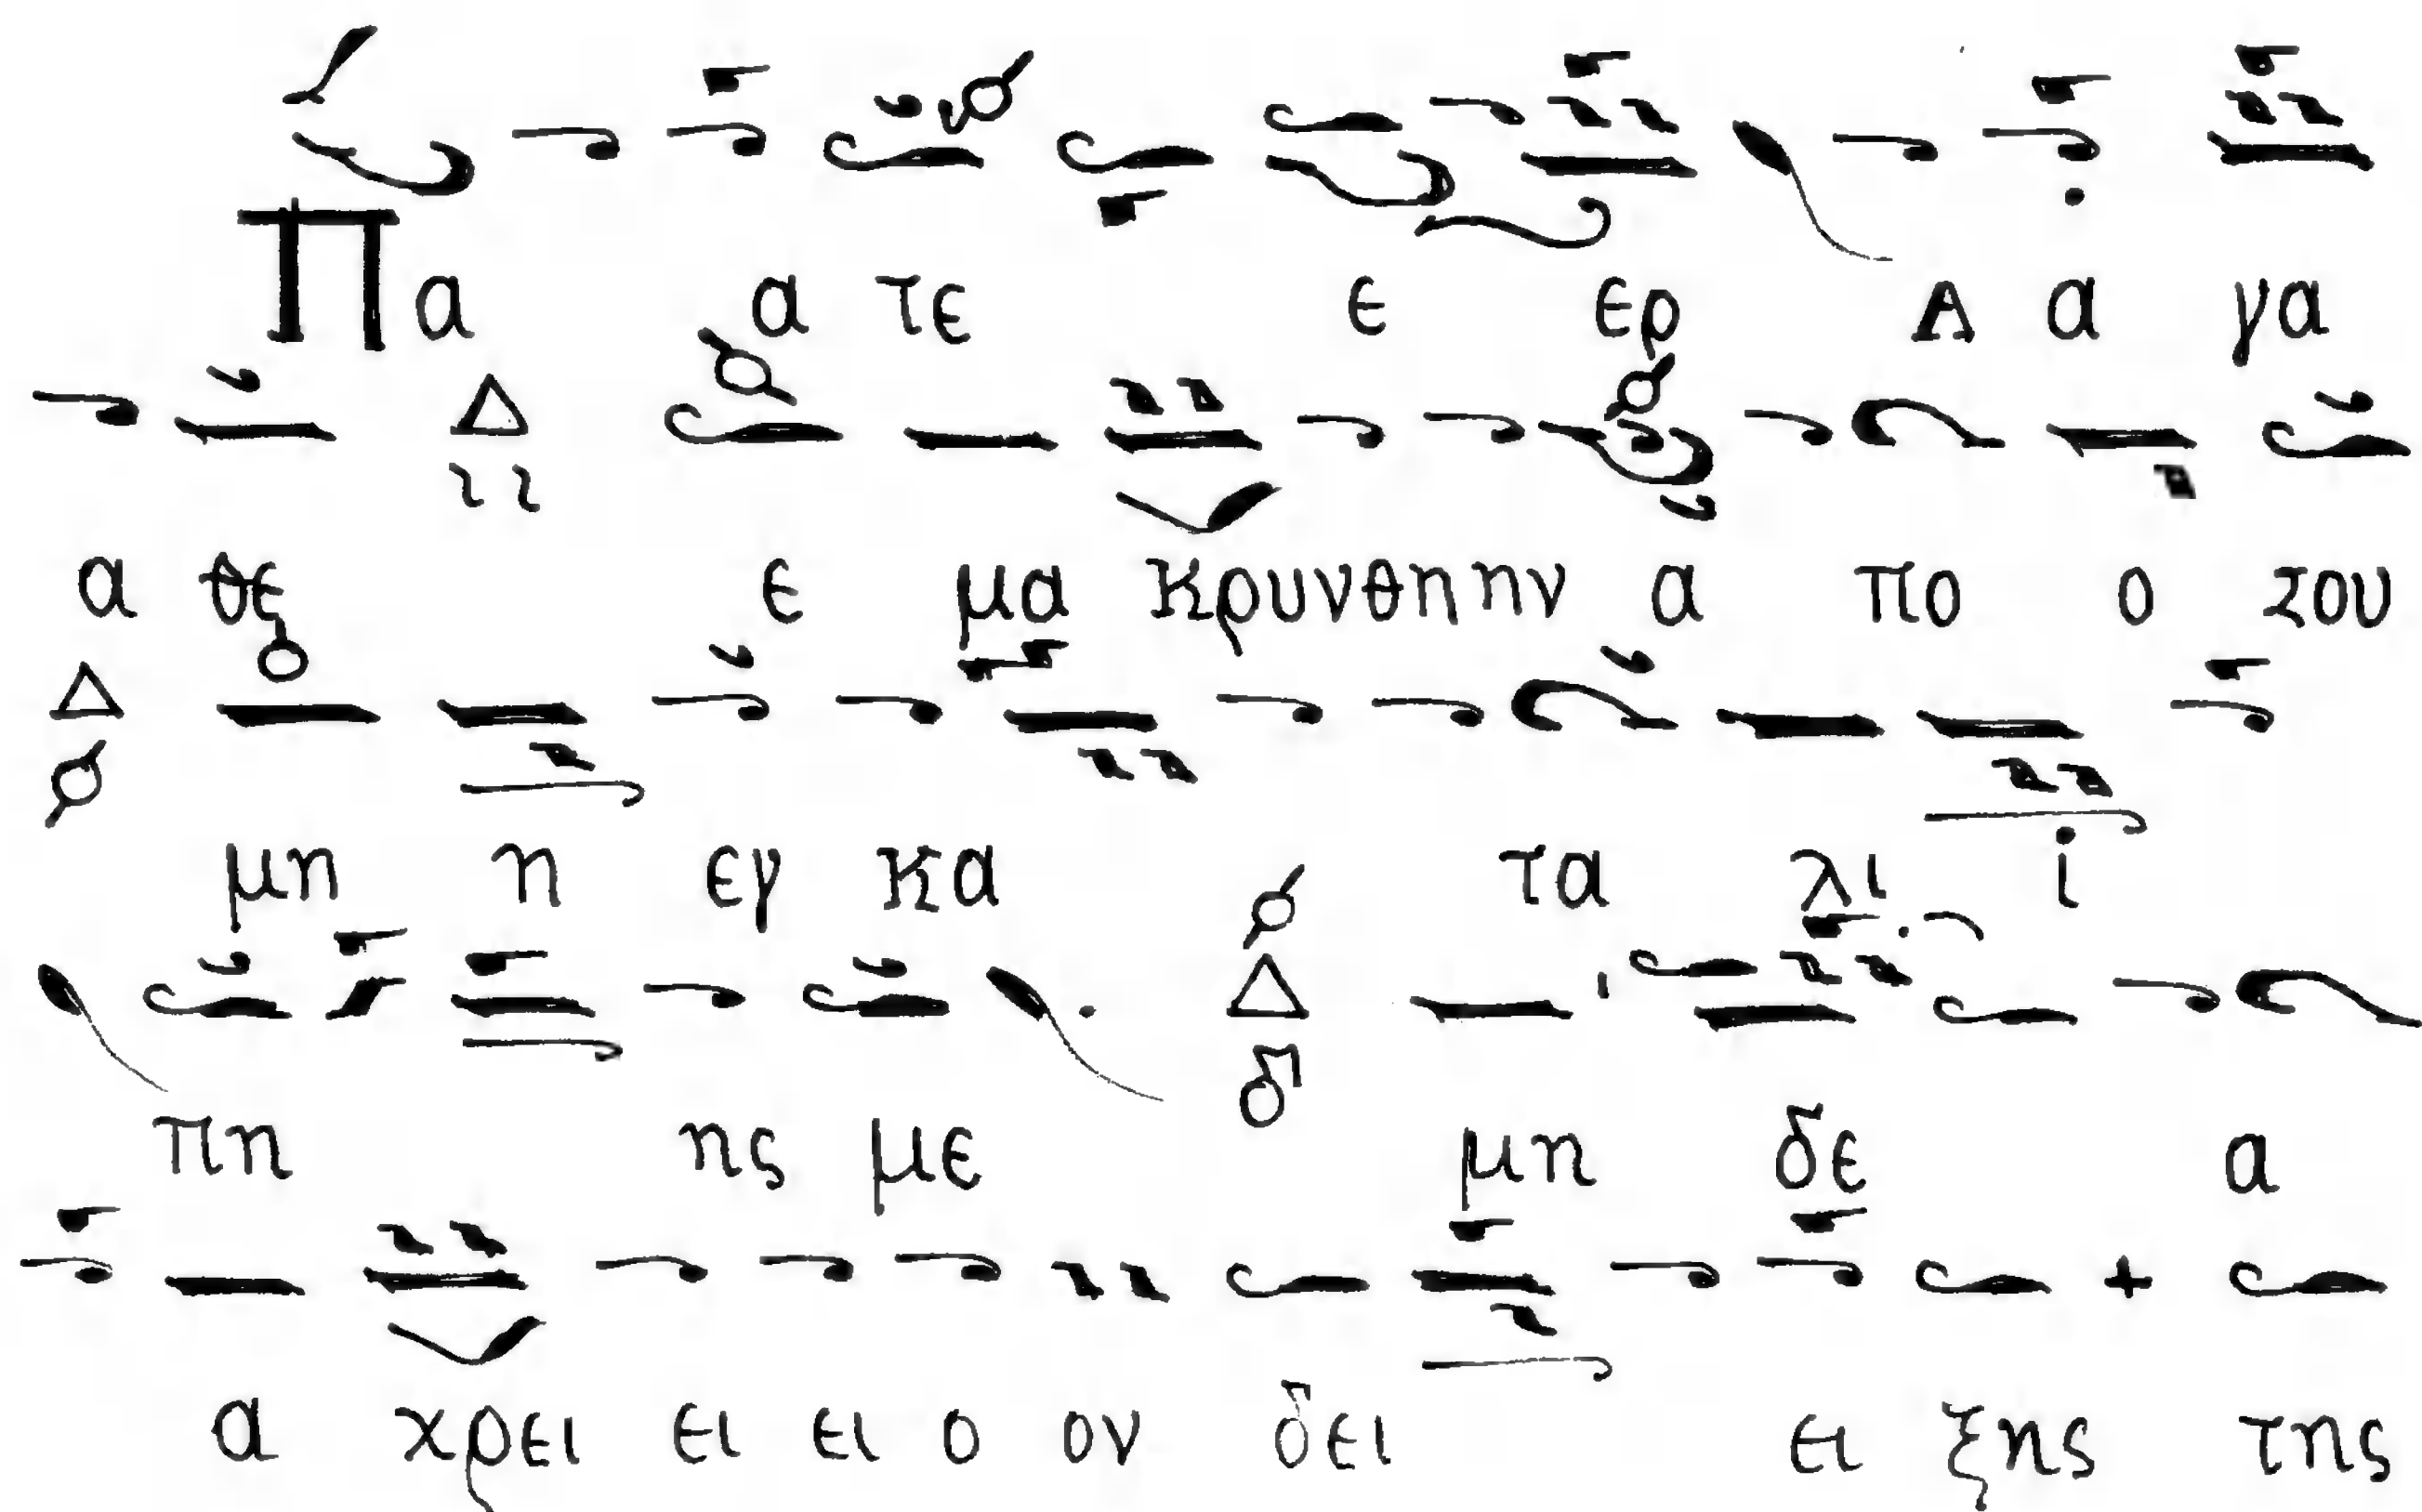 Πα α τε ε ερ Α α γα
α θε ε μα κρυνθη ην α πο ο σου
μη η εγ κα τα λι ι
πη ης με μη δε α
α χρει ει ει ο ον δει ει ξης της